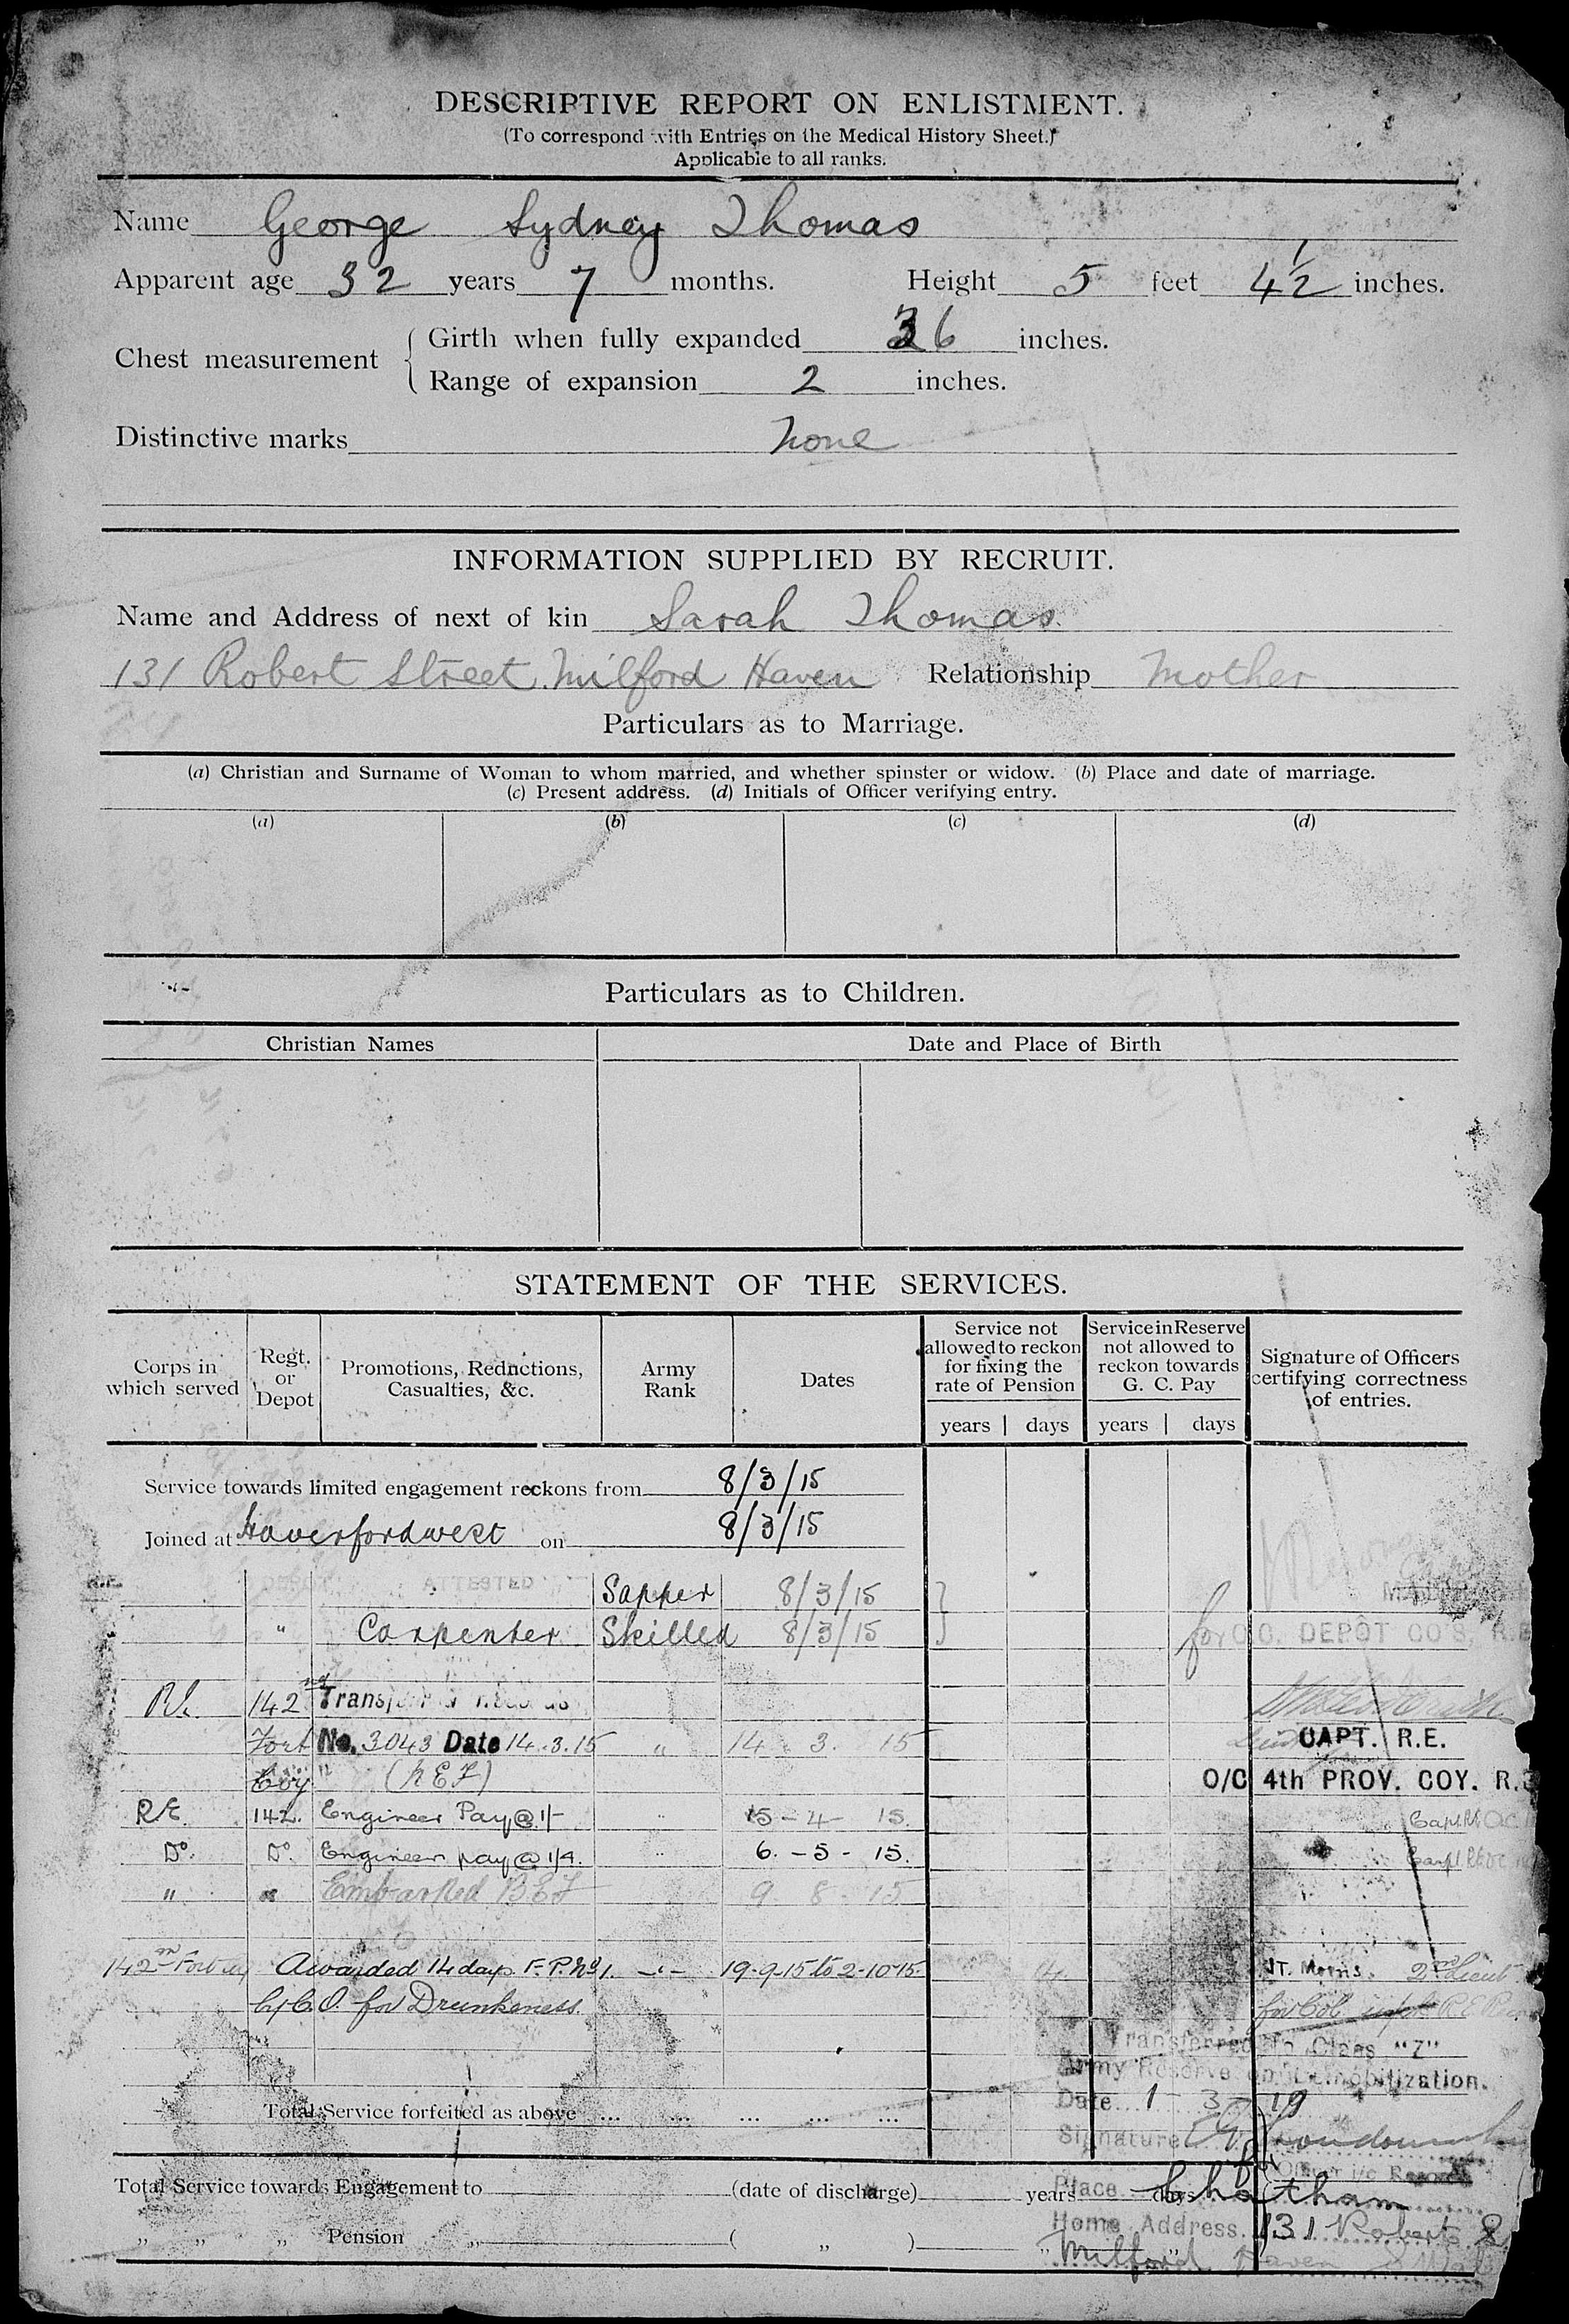 DESCRIPTIVE REPORT ON ENLISTMENT.
(To correspond with Entries on the Medical History Sheet.)
Applicable to all ranks.
Name George Sydney Thomas
Apparent age 32 years 7 months. Height 5 feet 4½ inches.
Chest measurement { Girth when fully expanded 36 inches.
Range of expansion 2 inches.
Distinctive marks None
INFORMATION SUPPLIED BY RECRUIT.
Name and Address of next of kin Sarah Thomas
131 Robert Street. Milford Haven Relationship Mother
Particulars as to Marriage.
(a) Christian and Surname of Woman to whom married, and whether spinster or widow. (b) Place and date of marriage.
(c) Present address. (d) Initials of Officer verifying entry.
(a) (b) (c) (d)
Particulars as to Children.
Christian Names Date and Place of Birth
STATEMENT OF THE SERVICES.
Corps in which served
Regt. or Depot
Promotions, Reductions, Casualties, &c.
Army Rank
Dates
Service not allowed to reckon for fixing the rate of Pension
years | days
Service in Reserve not allowed to reckon towards G. C. Pay
years | days
Signature of Officers certifying correctness of entries.
Service towards limited engagement reckons from 8/3/15
Joined at Haverfordwest on 8/3/15
R.E. DEPOT. ATTESTED Sapper 8/3/15
" Carpenter Skilled 8/3/15 for O.C. DEPÔT CO'S, R.E.
R.E. 142nd Transfer
Fort No. 3043 Date 14.3.15 " 14 3. 15 CAPT. R.E.
Coy " O/C 4th PROV. COY. R.E.
RE. 142. Engineer Pay @ 1/- " 15-4-15. Capt. R.E. O.C.
Do. Do. Engineer pay @ 1/4. " 6.-5-15. Capt. R.E. O.C.
" " Embarked BEF 9 8. 15
142nd Fort Coy Awarded 14 days F.P. No 1. -"- 19-9-15 to 2-10-15 J.T. Morris. 2nd Lieut
by C.O. for Drunkeness. for Col. i/c R.E. Rec
Transferred to Class "Z"
Army Reserve on Demobilization.
Date 1 3 19
Total Service forfeited as above ... ... ... ... ...
Signature
Officer i/c Records
Total Service towards Engagement to (date of discharge) years days
Place Chatham
" " " Pension " ( " )
Home Address. 131 Robert S
" Milford Haven